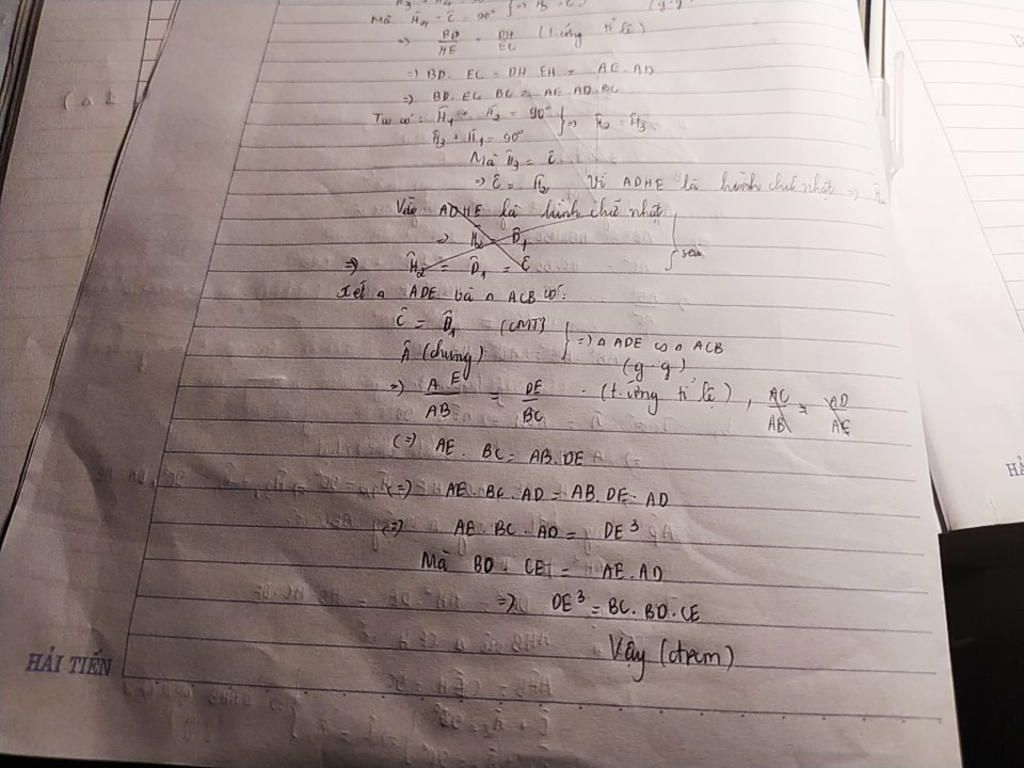 Mà Ĥ₁ + Ĉ = 90°
=> BD/HE = DH/EC (t.ứng tỉ lệ)
=> BD. EC = DH EH = AE. AD
=> BD. EC. BC = AE. AD. BC
Ta có: Ĥ₁ + Ĥ₂ = 90° } => Ĥ₂ = Ĥ₃
Ĥ₃ + Ĥ₁ = 90°
Mà Ĥ₃ = Ĉ
=> Ĉ = Ĥ₂ Vì ADHE là hình chữ nhật =>
ADHE là hình chữ nhật
=> H₂ D̂₁
=> Ĥ₂ = D̂₁ = Ĉ
Xét △ ADE và △ ACB có:
Ĉ = D̂₁ (CMT) } => △ ADE ∽ △ ACB
Â (chung) (g.g)
=> AE/AB = DE/BC (t.ứng tỉ lệ), AC/AB = AD/AE
(=) AE. BC = AB. DE
(=) AE. BC. AD = AB. DE. AD
(=) AE. BC. AD = DE³
Mà BD. CE = AE. AD
=> DE³ = BC. BD. CE
Vậy (đpcm)
HẢI TIẾN
HẢ